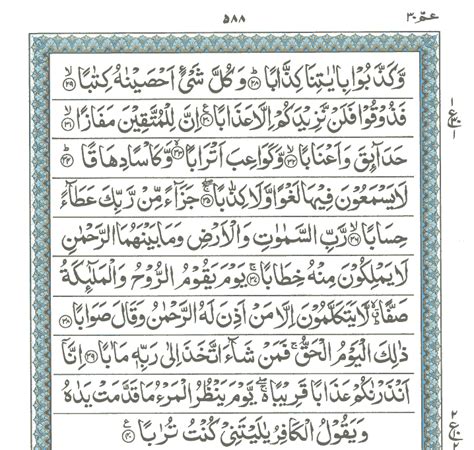 عمّ ٣٠ ۵۸۸
وَّكَذَّبُوْا بِاٰيٰتِنَا كِذَّابًا ﴿۲۸﴾ وَكُلَّ شَىْءٍ اَحْصَيْنٰهُ كِتٰبًا ﴿۲۹﴾
فَذُوْقُوْا فَلَنْ نَّزِيْدَكُمْ اِلَّا عَذَابًا ﴿۳۰﴾ اِنَّ لِلْمُتَّقِيْنَ مَفَازًا ﴿۳۱﴾
حَدَآئِقَ وَاَعْنَابًا ﴿۳۲﴾ وَّكَوَاعِبَ اَتْرَابًا ﴿۳۳﴾ وَّكَاْسًا دِهَاقًا ﴿۳۴﴾
لَا يَسْمَعُوْنَ فِيْهَا لَغْوًا وَّلَا كِذّٰبًا ﴿۳۵﴾ جَزَآءً مِّنْ رَّبِّكَ عَطَآءً
حِسَابًا ﴿۳۶﴾ رَّبِّ السَّمٰوٰتِ وَالْاَرْضِ وَمَا بَيْنَهُمَا الرَّحْمٰنِ
لَا يَمْلِكُوْنَ مِنْهُ خِطَابًا ﴿۳۷﴾ يَوْمَ يَقُوْمُ الرُّوْحُ وَالْمَلٰٓئِكَةُ
صَفًّا ۙ لَّا يَتَكَلَّمُوْنَ اِلَّا مَنْ اَذِنَ لَهُ الرَّحْمٰنُ وَقَالَ صَوَابًا ﴿۳۸﴾
ذٰلِكَ الْيَوْمُ الْحَقُّ ۚ فَمَنْ شَآءَ اتَّخَذَ اِلٰى رَبِّهٖ مَاٰبًا ﴿۳۹﴾ اِنَّآ
اَنْذَرْنٰكُمْ عَذَابًا قَرِيْبًا ۚ يَّوْمَ يَنْظُرُ الْمَرْءُ مَا قَدَّمَتْ يَدٰهُ
وَيَقُوْلُ الْكٰفِرُ يٰلَيْتَنِيْ كُنْتُ تُرٰبًا ﴿۴۰﴾